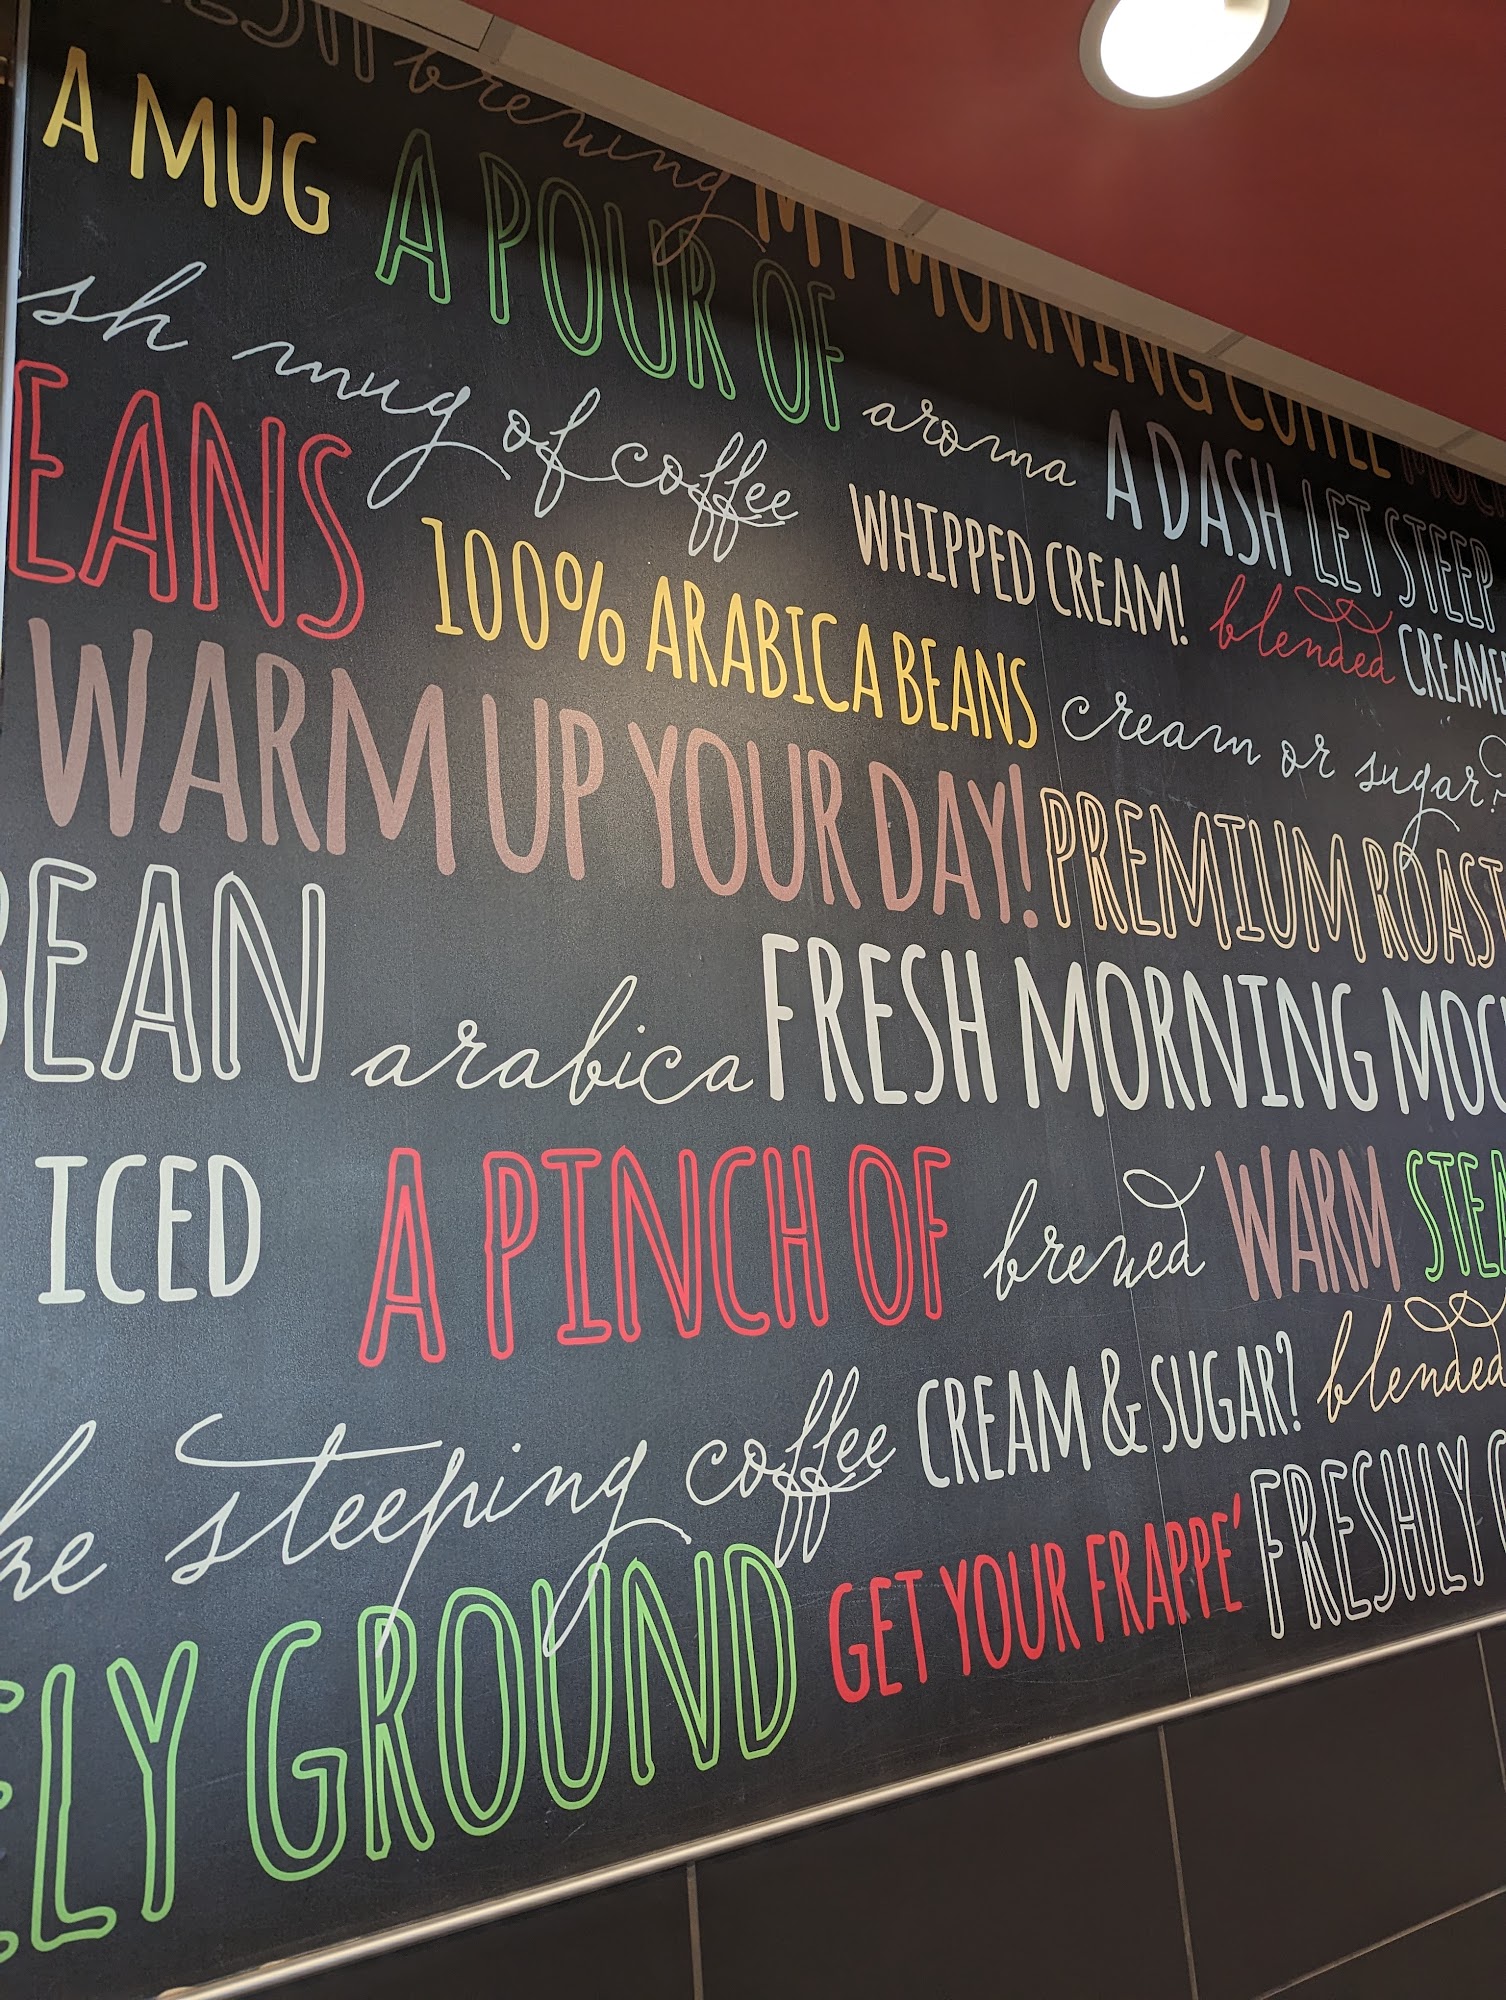 brewing MY MORNING COFFEE
A MUG A POUR OF aroma A DASH LET STEEP
mug of coffee WHIPPED CREAM! blended
EANS 100% ARABICA BEANS cream or sugar?
WARM UP YOUR DAY! PREMIUM ROAST
BEAN arabica FRESH MORNING MOC
ICED A PINCH OF brewed WARM STEA
steeping coffee CREAM & SUGAR? blended
ELY GROUND GET YOUR FRAPPE' FRESHLY